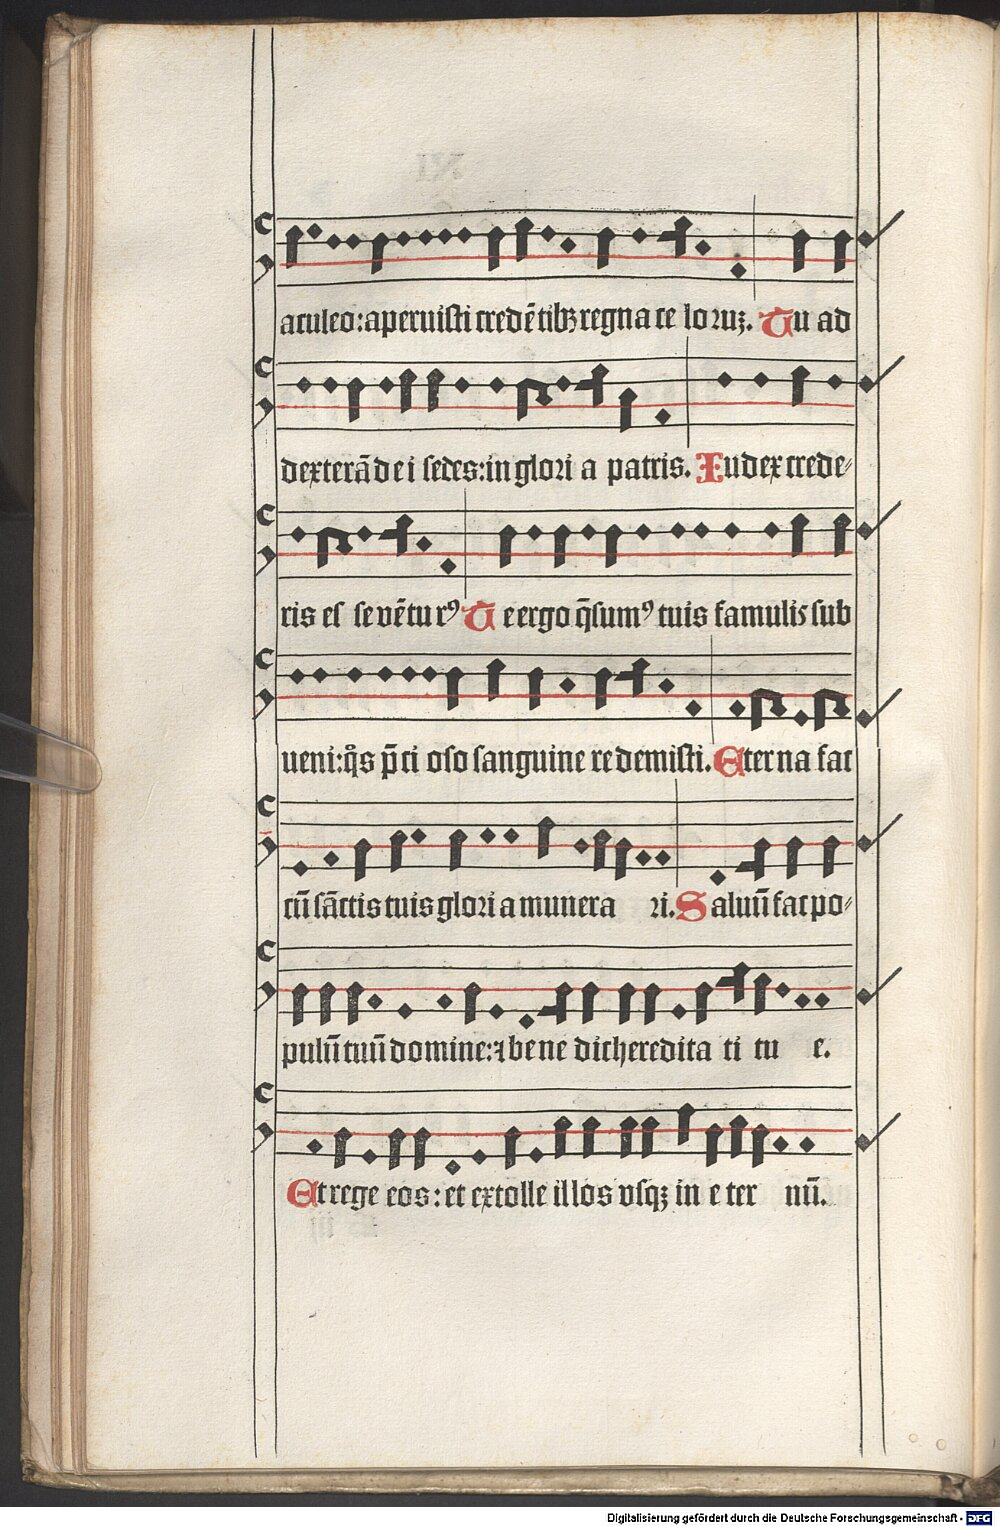 aculeo: aperuisti credētibꝫ regna ce lo ruꝫ. Tu ad
dexterā de i sedes: in glori a patris. Iudex crede⸗
ris es se vētu rꝰ Te ergo q̄sumꝰ tuis famulis sub
ueni: q̊s p̄ci oso sanguine re demisti. Eterna fac
cū sāctis tuis glori a munera ri. Saluū fac po⸗
pulū tuū domine: ⁊ bene dic heredita ti tu e.
Et rege eos: et extolle illos vsqꝫ in e ter nū.
Digitalisierung gefördert durch die Deutsche Forschungsgemeinschaft - DFG